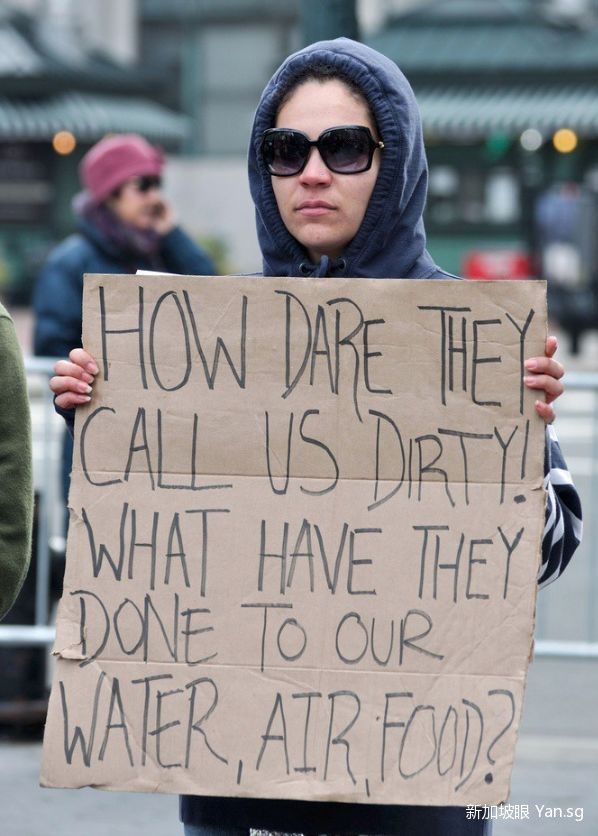 HOW DARE THEY
CALL US DIRTY!
WHAT HAVE THEY
DONE TO OUR
WATER, AIR, FOOD?
新加坡眼 Yan.sg